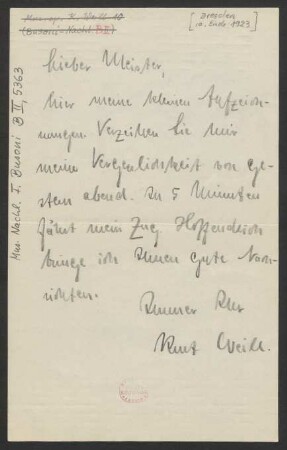 Mus.ep. K. Weill 10
(Busoni-Nachl. B II)
[Dresden
10. Ende 1923]
Mus. Nachl. F. Busoni B II, 5363
Lieber Meister,
hier meine kleinen Aufzeich-
nungen. Verzeihen Sie mir
meine Vergeßlichkeit von ge-
stern abend. In 5 Minuten
fährt mein Zug. Hoffendlich
bringe ich Ihnen gute Nach-
richten.
Immer Ihr
Kurt Weill.